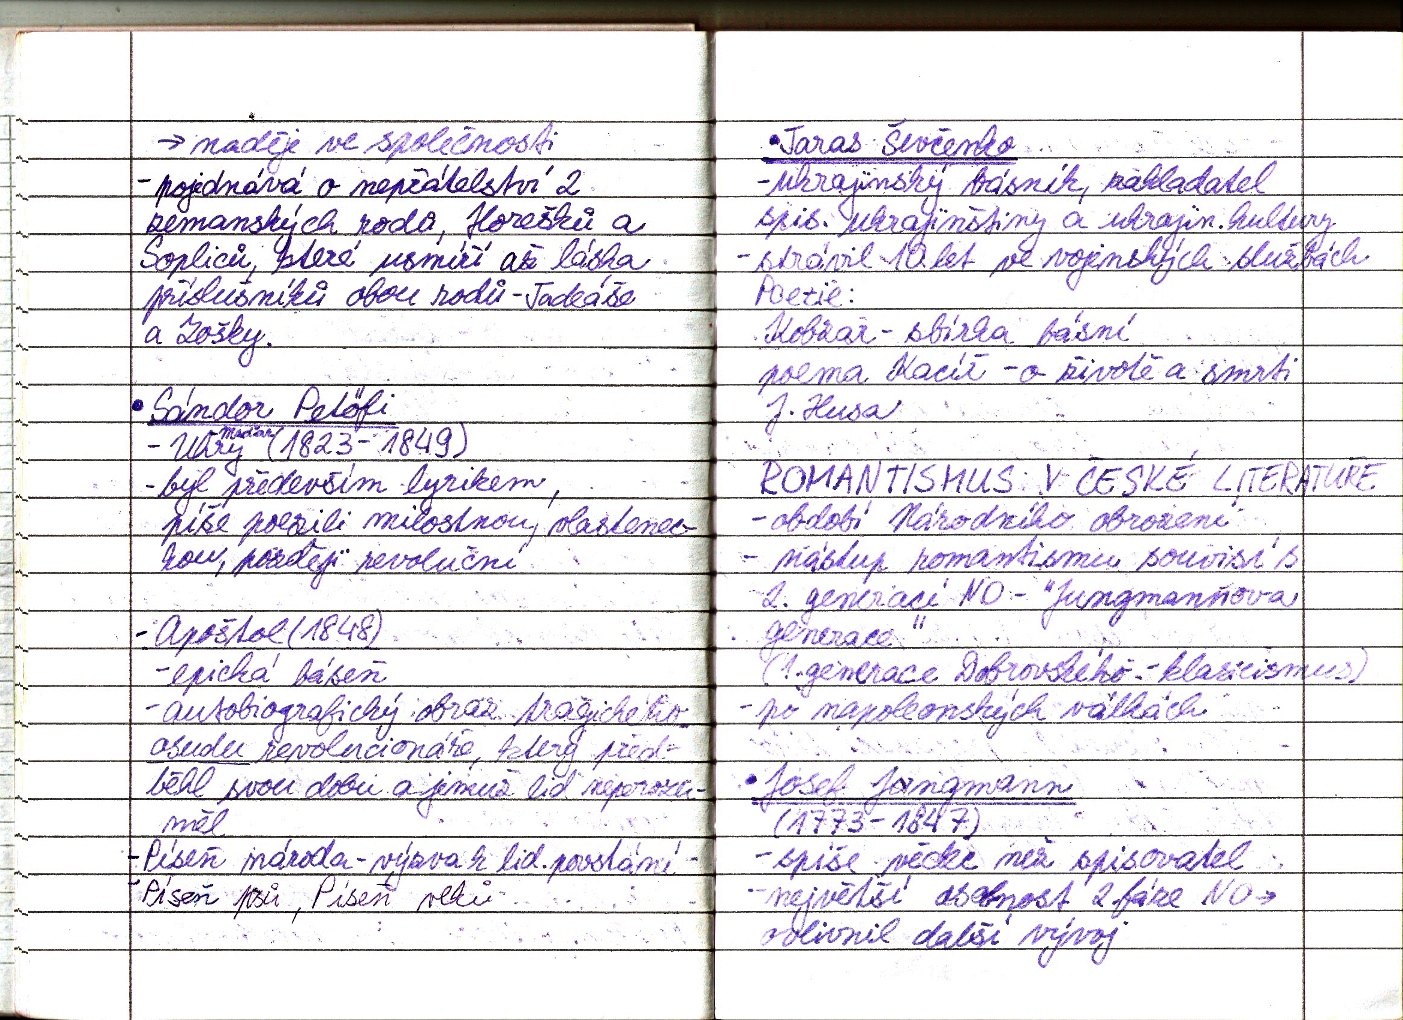 → naděje ve společnosti
- pojednává o nepřátelství 2
zemanských rodů, Horešků a
Sopliců, které usmíří až láska
příslušníků obou rodů - Tadeáše
a Zošky.
• Sándor Petőfi
- Uhry maďar (1823 - 1849)
- byl především lyrikem,
píše poezii milostnou, vlastenec-
kou, později revoluční
- Apoštol (1848)
- epická báseň
- autobiografický obraz tragického
osudu revolucionáře, který před-
běhl svou dobu a jemuž lid neporozu-
měl
- Píseň národa - výzva k lid. povstání
- Píseň psů, Píseň vlků
• Taras Ševčenko
- ukrajinský básník, zakladatel
spis. ukrajinštiny a ukrajin. kultury
- strávil 10 let ve vojenských službách
Poezie:
Kobzar - sbírka básní
poema Kacíř - o životě a smrti
J. Husa
ROMANTISMUS V ČESKÉ LITERATUŘE
- období Národního obrození
- nástup romantismu souvisí s
2. generací NO - "Jungmannova
generace"
(1. generace Dobrovského - klasicismus)
- po napoleonských válkách
• Josef Jungmann
(1773 - 1847)
- spíše vědec než spisovatel
- největší osobnost 2. fáze NO →
ovlivnil další vývoj